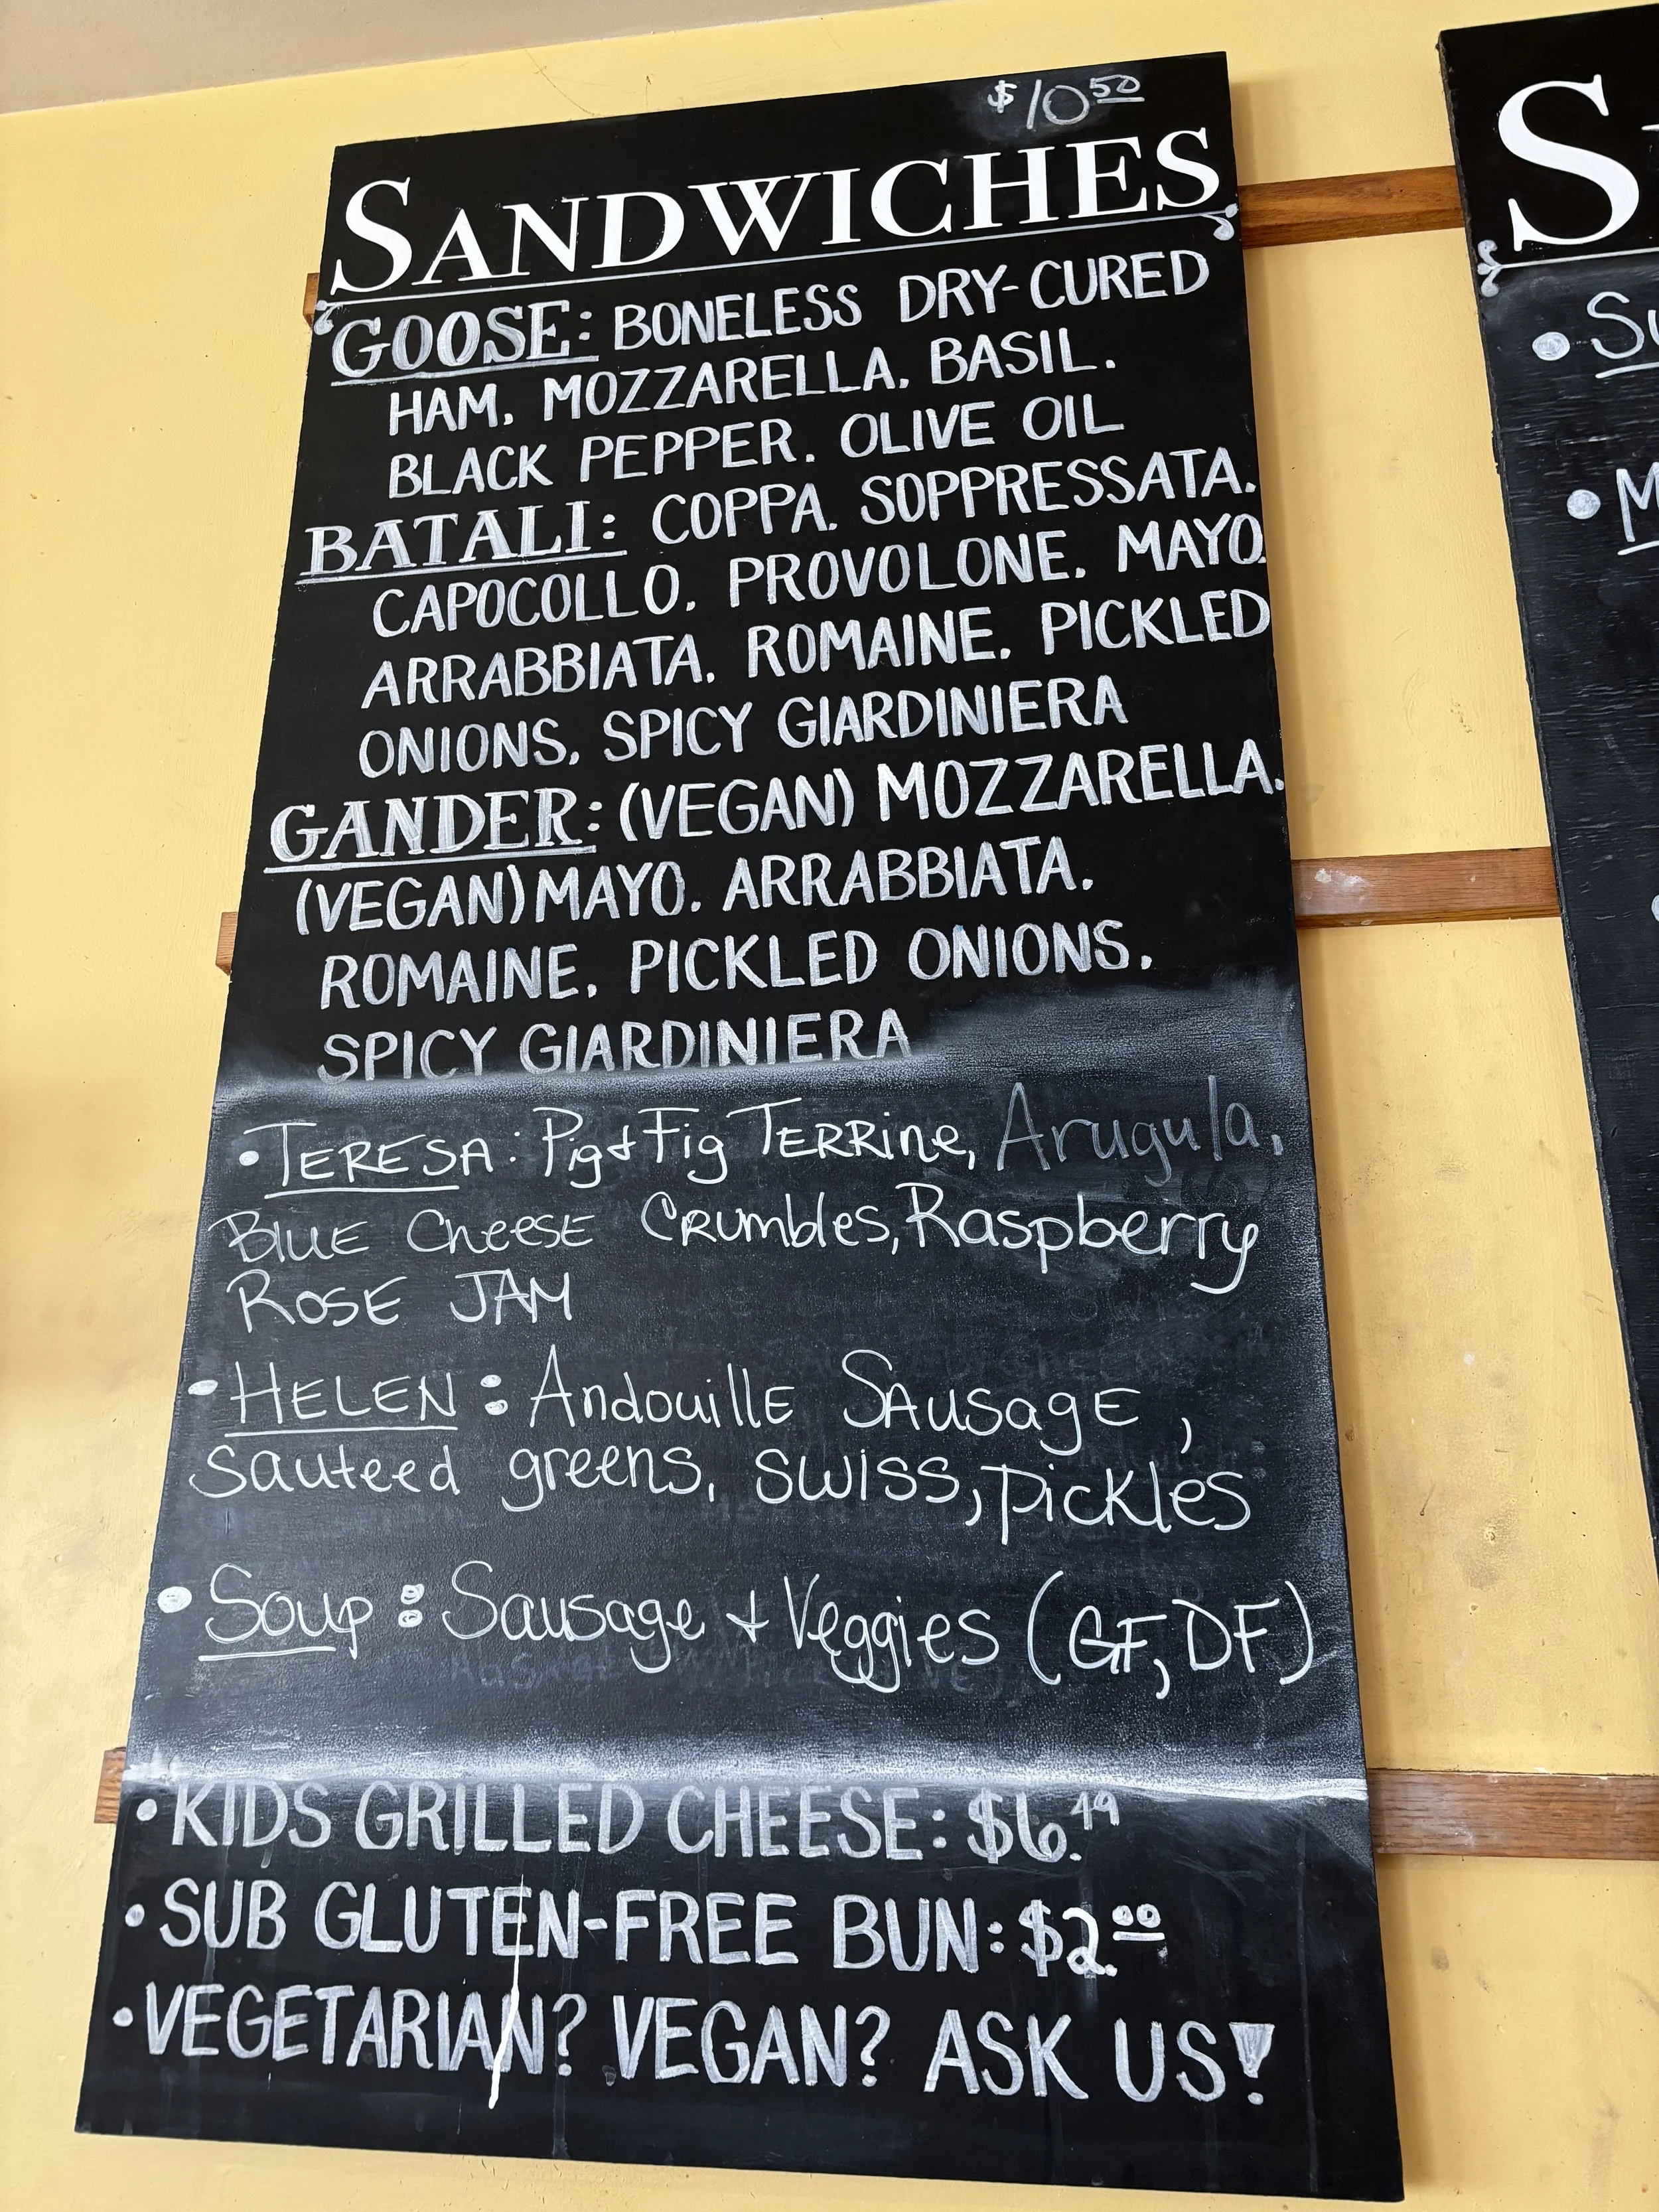 $10.50
SANDWICHES
GOOSE: BONELESS DRY-CURED
HAM, MOZZARELLA, BASIL,
BLACK PEPPER, OLIVE OIL
BATALI: COPPA, SOPPRESSATA,
CAPOCOLLO, PROVOLONE, MAYO,
ARRABBIATA, ROMAINE, PICKLED
ONIONS, SPICY GIARDINIERA
GANDER: (VEGAN) MOZZARELLA,
(VEGAN) MAYO, ARRABBIATA,
ROMAINE, PICKLED ONIONS,
SPICY GIARDINIERA
• TERESA: Pig & Fig TERRine, Arugula,
BLUE CheesE CRumbles, Raspberry
ROSE JAM
• HELEN: AndouillE SAusagE,
Sauteed greens, SWISS, pickles
• Soup: Sausage + Veggies (GF, DF)
• KIDS GRILLED CHEESE: $6.49
• SUB GLUTEN-FREE BUN: $2.00
• VEGETARIAN? VEGAN? ASK US!